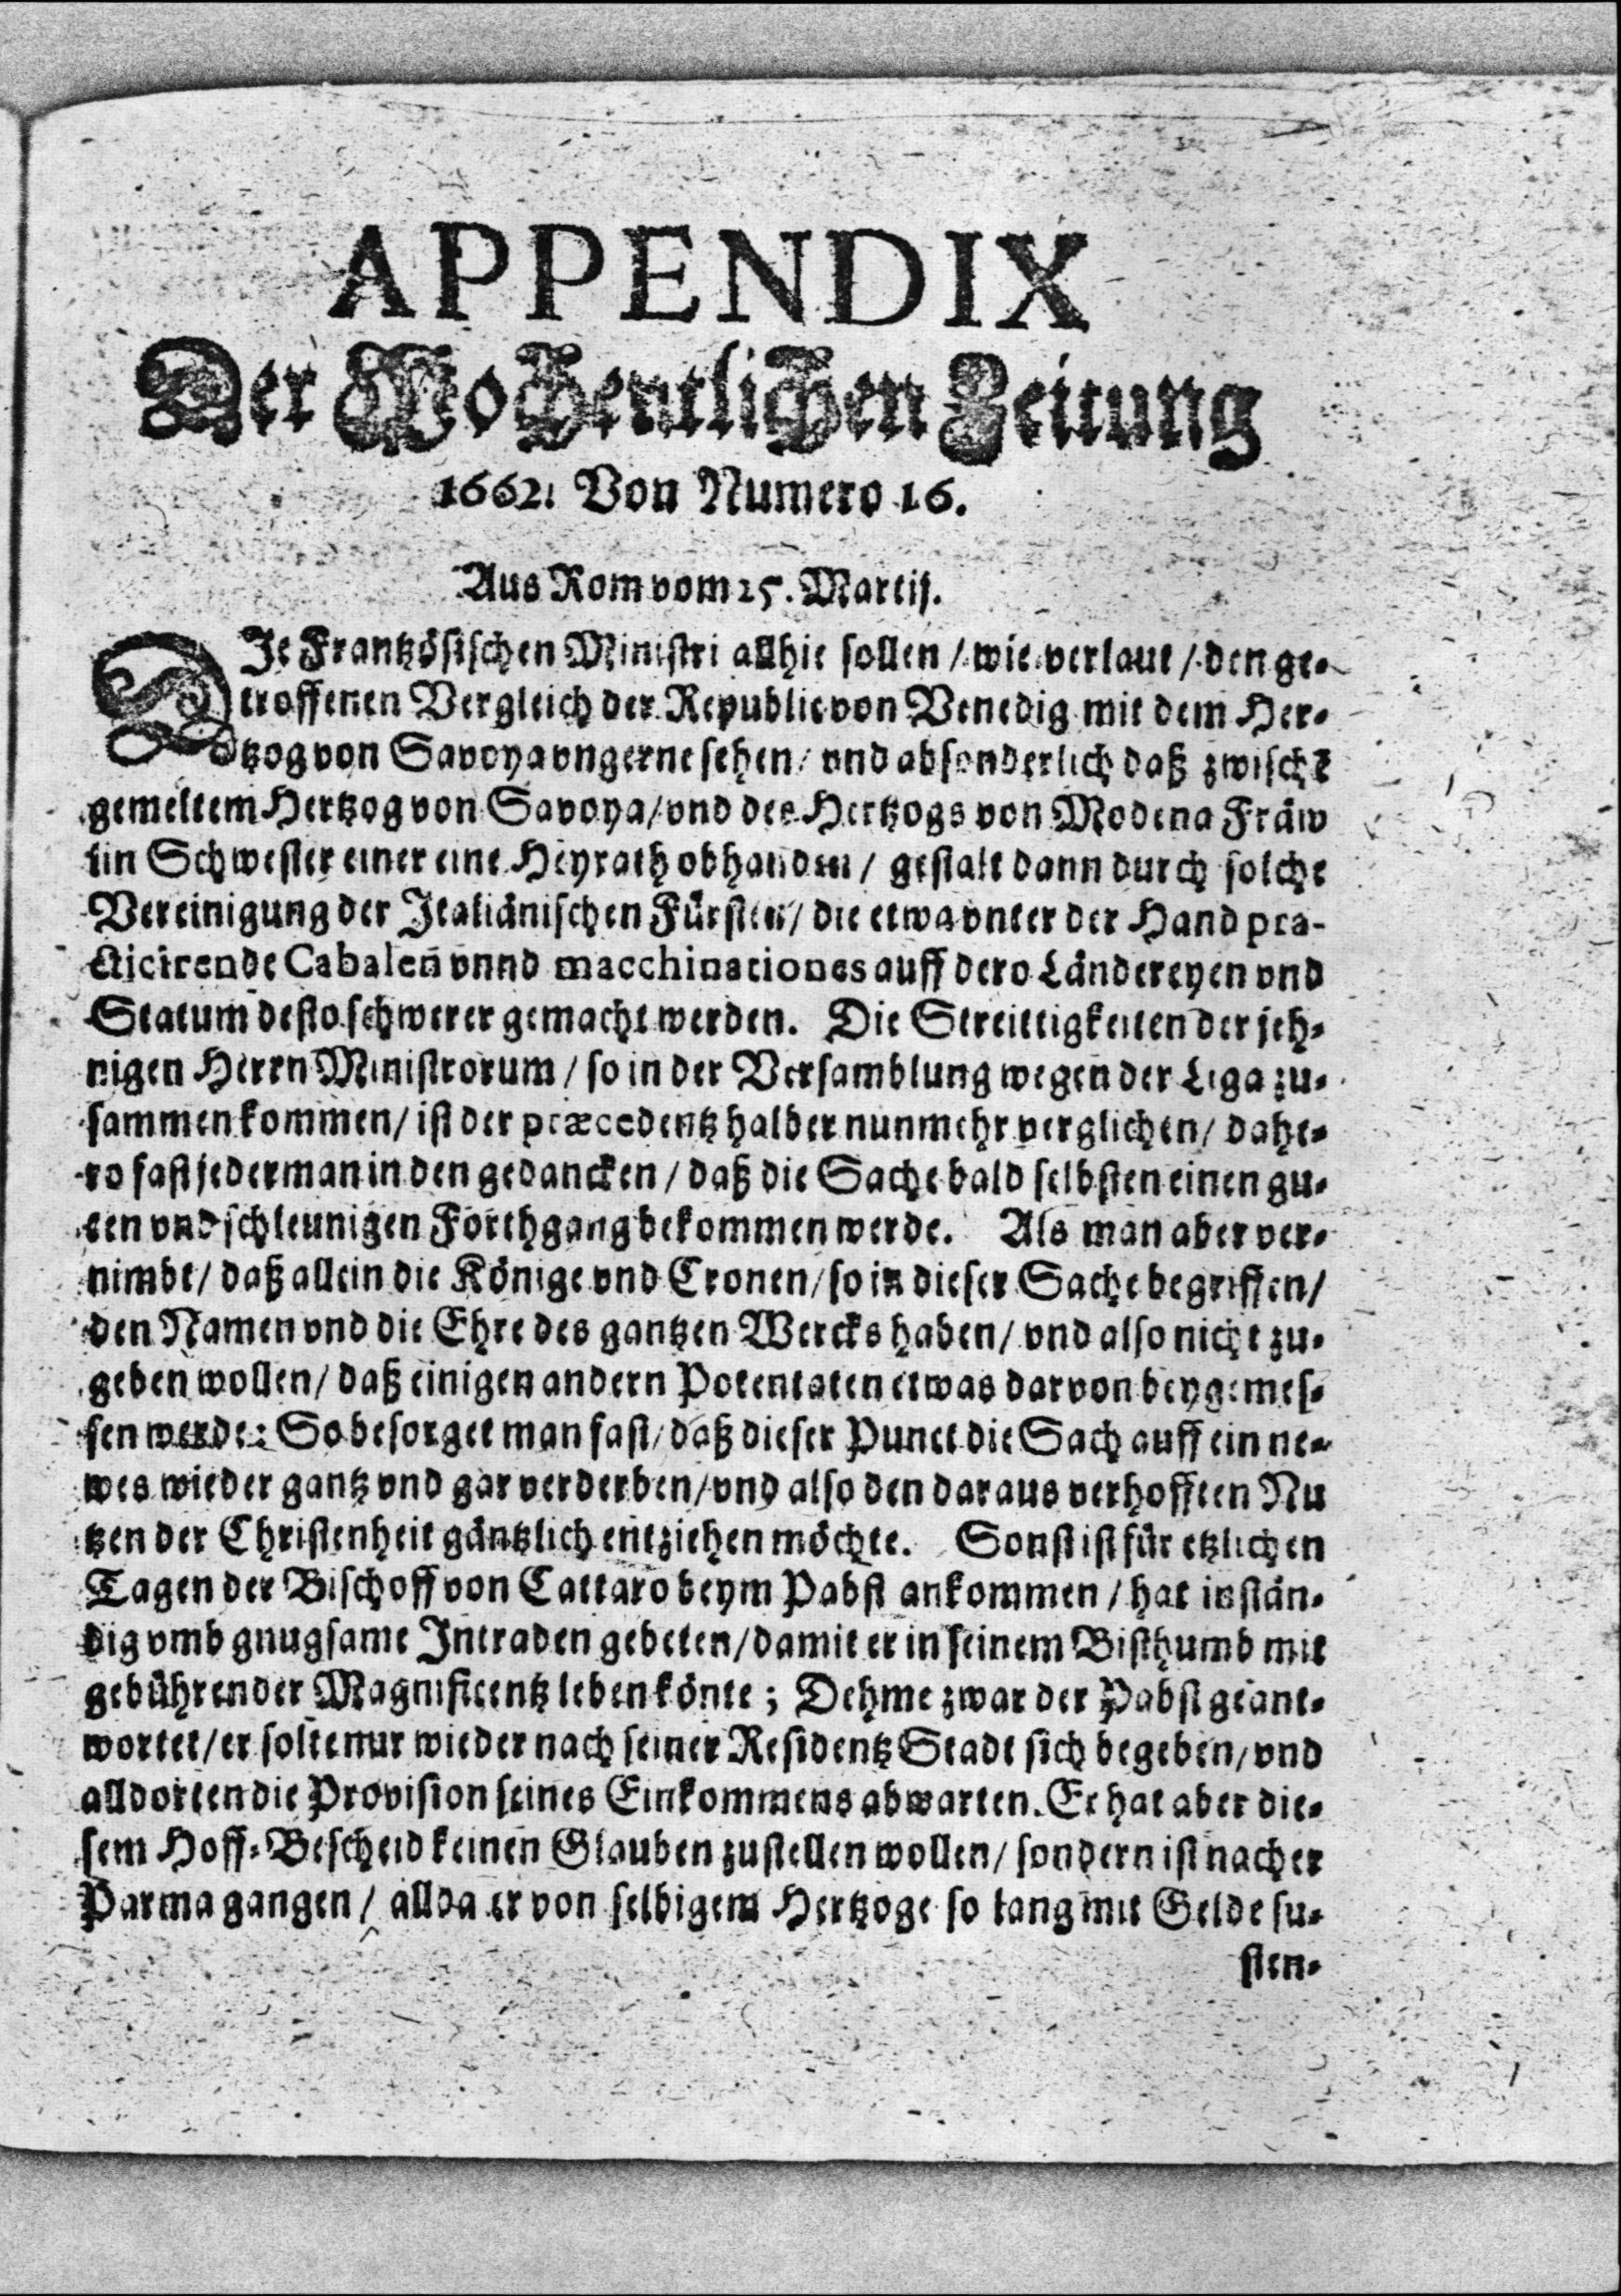 APPENDIX
Der Wochentlichen Zeitung
1662. Von Numero 16.
Aus Rom vom 25. Martij.
DJe Frantzösischen Ministri allhie sollen / wie verlaut / den ge-
troffenen Vergleich der Republic von Venedig mit dem Her-
tzog von Savoya vngerne sehen / vnd absonderlich daß zwischē
gemeltem Hertzog von Savoya / vnd des Hertzogs von Modena Fräw
lin Schwester einer eine Heyrath obhanden / gestalt dann durch solche
Vereinigung der Jtaliänischen Fürsten / die etwa vnter der Hand pra-
cticirende Cabalen vnnd macchinationes auff dero Ländereyen vnd
Statum desto schwerer gemacht werden. Die Streittigkeiten der jeh-
nigen Herrn Ministrorum / so in der Versamblung wegen der Liga zu-
sammen kommen / ist der præcedentz halber nunmehr verglichen / dahe-
ro fast jederman in den gedancken / daß die Sache bald selbsten einen gu-
ten vnd schleunigen Forthgang bekommen werde. Als man aber ver-
nimbt / daß allein die Könige vnd Cronen / so in dieser Sache begriffen /
den Namen vnd die Ehre des gantzen Wercks haben / vnd also nicht zu-
geben wollen / daß einigen andern Potentaten etwas darvon beygemes-
sen werde: So besorget man fast / daß dieser Punct die Sach auff ein ne-
wes wieder gantz vnd gar verderben / vnd also den daraus verhofften Nu
tzen der Christenheit gäntzlich entziehen möchte. Sonst ist für etzlichen
Tagen der Bischoff von Cattaro beym Pabst ankommen / hat instän-
dig vmb gnugsame Jntraden gebeten / damit er in seinem Bisthumb mit
gebührender Magnificentz leben könte ; Dehme zwar der Pabst geant-
wortet / er solte nur wieder nach seiner Residentz Stadt sich begeben / vnd
alldorten die Provision seines Einkommens abwarten. Er hat aber die-
sem Hoff-Bescheid keinen Glauben zustellen wollen / sondern ist nacher
Parma gangen / allda er von selbigem Hertzoge so lang mit Gelde su-
sten-